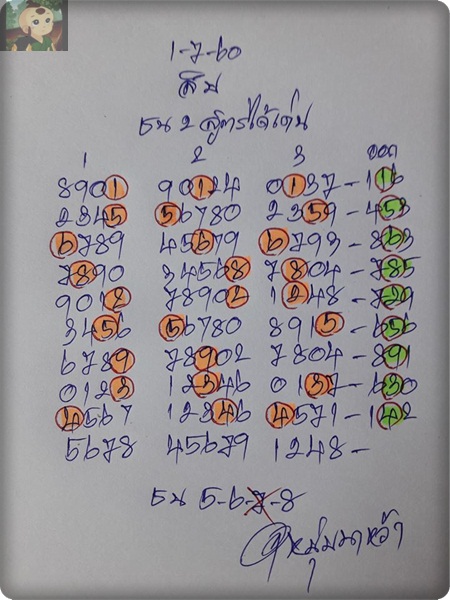 1-7-60
สิบ
บน 2 สูตรได้เด่น
1 2 3 ออก
8901 90124 0137 - 116
2345 56780 2359 - 453
6789 45679 6793 - 863
7890 34568 7804 - 785
9012 78902 1248 - 729
3456 56780 8915 - 656
6789 78902 7804 - 891
0123 12346 0137 - 630
4567 12346 4571 - 142
5678 45679 1248 -
บน 5-6-7-8